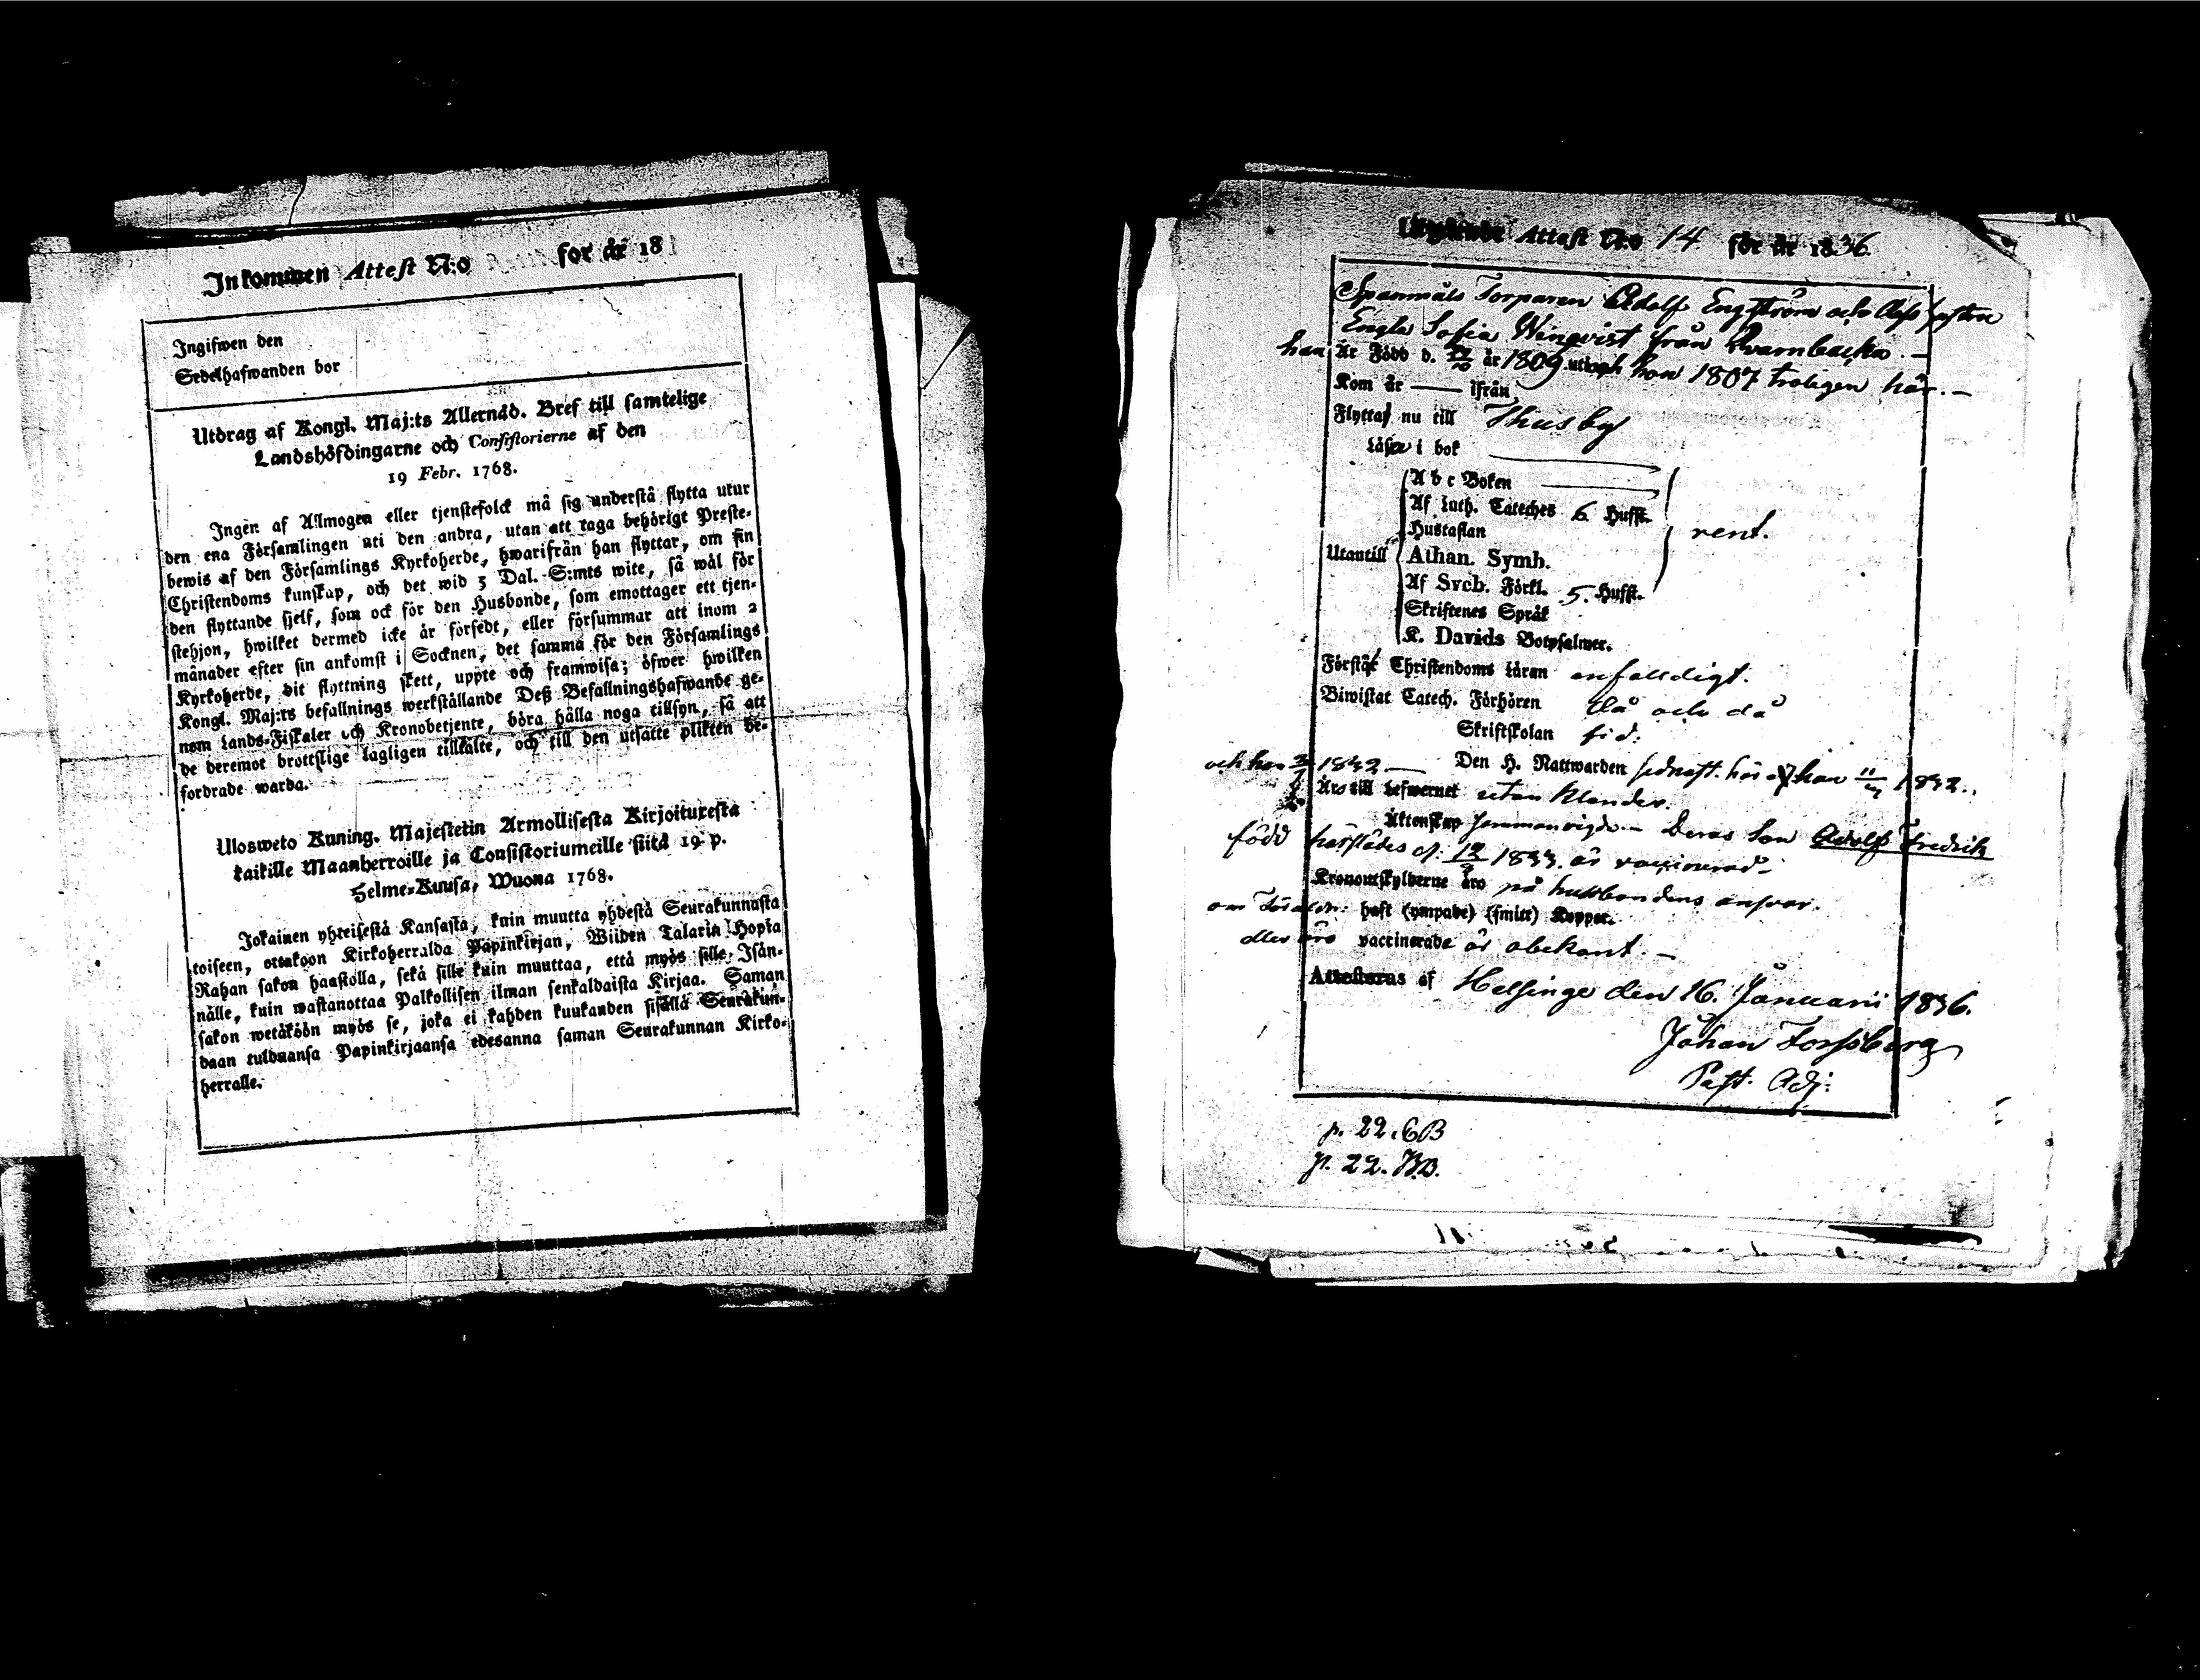 Inkommen Attest N:o för år 18
Ingifwen den
Sedelhafwanden bor
Utdrag af Kongl. Maj:ts Allernåd. Bref till samtelige
Landshöfdingarne och Consistorierne af den
19 Febr. 1768.
Ingen af Allmogen eller tjenstefolck må sig understå flytta utur
den ena Församlingen uti den andra, utan att taga behörigt Preste-
bewis af den Församlings Kyrkoherde, hwarifrån han flyttar, om sin
Christendoms kunskap, och det wid 5 Dal. S:mts wite, så wäl för
den flyttande sjelf, som ock för den Husbonde, som emottager ett tjen-
stehjon, hwilket dermed icke är försedt, eller försummar att inom 2
månader efter sin ankomst i Socknen, det samma för den Församlings
Kyrkoherde, dit flyttning skett, uppte och framwisa; öfwer hwilken
Kongl. Maj:ts befallnings werkställande Deß Befallningshafwande ge-
nom Lands-Fiskaler och Kronobetjente, böra hålla noga tillsyn, så att
de deremot brottslige lagligen tilltalte, och till den utsatte plikten be-
fordrade warda.
Ulosweto Kuning. Majestetin Armollisesta Kirjoituxesta
kaikille Maanherroille ja Consistoriumeille siitä 19 p.
Helme-Kuusa, Wuona 1768.
Jokainen yhteisestä Kansasta, kuin muutta yhdestä Seurakunnasta
toiseen, ottakoon Kirkoherralda Papinkirjan, Wiiden Talarin Hopia
Rahan sakon haastolla, sekä sille kuin muuttaa, että myös sille Isän-
nälle, kuin wastanottaa Palkollisen ilman senkaldaista Kirjaa. Saman
sakon wetäköön myös se, joka ei kahden kuukauden sisällä Seurakun-
daan tulduansa Papinkirjaansa edesanna saman Seurakunnan Kirko-
herralle.
Attest N:o 14 för år 1836.
Spannmåls Torparen Adolf Engström och Hustrun
Engla Sofia Winqvist från Qvarnbacka. —
han Är Född d. år 1809 och hon 1807 troligen här. —
Kom år — ifrån
Flyttar nu till Thusby
Läser i bok
A b c Boken
Af Luth. Cateches 6 Hufst.
Hustaflan
Utantill Athan. Symb. rent.
Af Sveb. Förkl. 5. Hufst.
Skriftenes Språk
K. Davids Botpsalmer.
Förstår Christendoms Läran enfaldigt.
Biwistat Catech. Förhören då och då
Skriftskolan
och hon 1832 — Den H. Nattwarden sednast här han 1832.
Äro till lefwernet utan klander.
Äktenskap sammanvigde. — Deras Son Adolf Fredrik
född härstädes d. 12/9 1833. är vaccinerad.
Kronoutskylderne äro på husbondens ansvar.
om Föräldr: haft (ympade) (smitt) Koppor.
eller äro vaccinerade är obekant. —
Attesteras af Helsinge den 16. Januarii 1836.
Johan Forssberg
Past. Adj:
p. 22. CB
p. 22. BB.